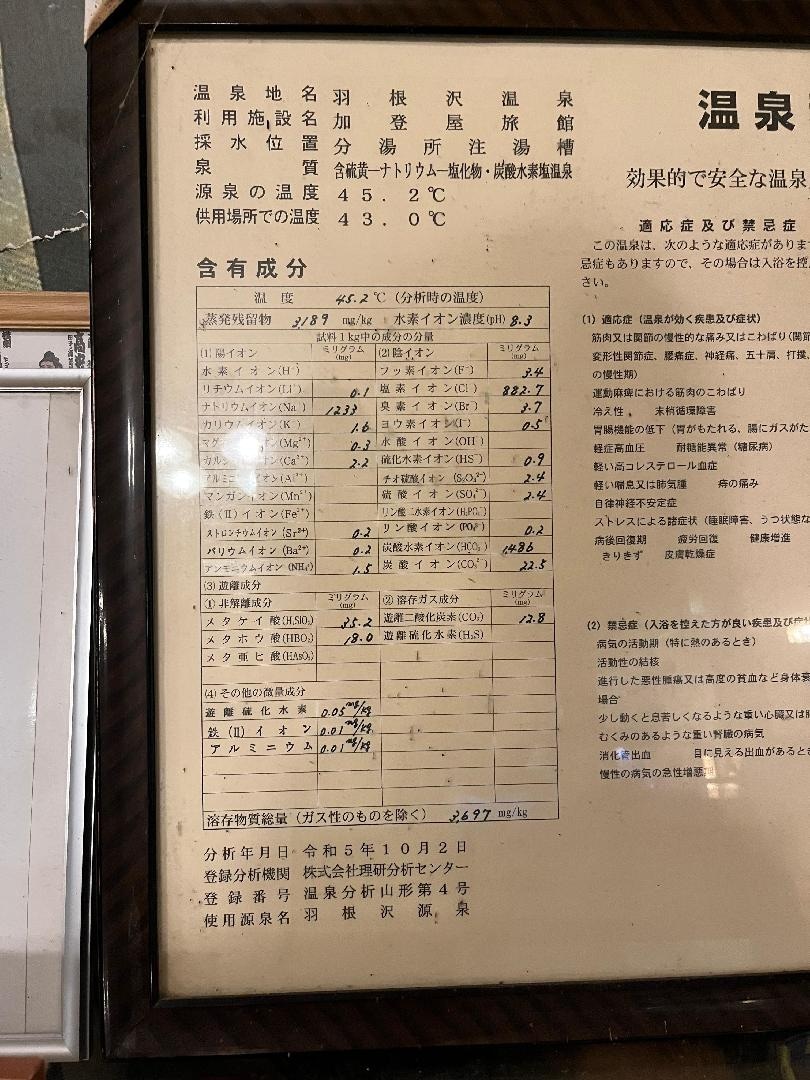 温泉地名 羽根沢温泉
利用施設名 加登屋旅館
採水位置 分湯所注湯槽
泉質 含硫黄ーナトリウムー塩化物・炭酸水素塩温泉
源泉の温度 45.2℃
供用場所での温度 43.0℃
含有成分
温度 45.2℃(分析時の温度)
蒸発残留物 3,189 mg/kg 水素イオン濃度(pH) 8.3
試料1kg中の成分の分量
(1)陽イオン ミリグラム(mg) (2)陰イオン ミリグラム(mg)
水素イオン(H⁺) フッ素イオン(F⁻) 3.4
リチウムイオン(Li⁺) 0.1 塩素イオン(Cl⁻) 882.7
ナトリウムイオン(Na⁺) 1233 臭素イオン(Br⁻) 3.7
カリウムイオン(K⁺) 1.6 ヨウ素イオン(I⁻) 0.5
マグネシウムイオン(Mg²⁺) 0.3 水酸イオン(OH⁻)
カルシウムイオン(Ca²⁺) 2.2 硫化水素イオン(HS⁻) 0.9
アルミニウムイオン(Al³⁺) チオ硫酸イオン(S₂O₃²⁻) 2.4
マンガンイオン(Mn²⁺) 硫酸イオン(SO₄²⁻) 2.4
鉄(II)イオン(Fe²⁺) リン酸二水素イオン(H₂PO₄⁻)
ストロンチウムイオン(Sr²⁺) 0.2 リン酸イオン(PO₄³⁻) 0.2
バリウムイオン(Ba²⁺) 0.2 炭酸水素イオン(HCO₃⁻) 1,486
アンモニウムイオン(NH₄⁺) 1.5 炭酸イオン(CO₃²⁻) 22.5
(3)遊離成分
①非解離成分 ミリグラム(mg) ②溶存ガス成分 ミリグラム(mg)
メタケイ酸(H₂SiO₃) 35.2 遊離二酸化炭素(CO₂) 12.8
メタホウ酸(HBO₂) 18.0 遊離硫化水素(H₂S)
メタ亜ヒ酸(HAsO₂)
(4)その他の微量成分
遊離硫化水素 0.05mg/kg
鉄(II)イオン 0.01mg/kg
アルミニウム 0.01mg/kg
溶存物質総量(ガス性のものを除く) 3,697 mg/kg
分析年月日 令和5年10月2日
登録分析機関 株式会社理研分析センター
登録番号 温泉分析山形第4号
使用源泉名 羽根沢源泉
温泉
効果的で安全な温泉
適応症及び禁忌症
この温泉は、次のような適応症がありま
忌症もありますので、その場合は入浴を控
さい。
(1) 適応症(温泉が効く疾患及び症状)
筋肉又は関節の慢性的な痛み又はこわばり(関節
変形性関節症、腰痛症、神経痛、五十肩、打撲、
の慢性期)
運動麻痺における筋肉のこわばり
冷え性、 末梢循環障害
胃腸機能の低下(胃がもたれる、腸にガスがた
軽症高血圧 耐糖能異常(糖尿病)
軽い高コレステロール血症
軽い喘息又は肺気腫 痔の痛み
自律神経不安定症
ストレスによる諸症状(睡眠障害、うつ状態な
病後回復期 疲労回復 健康増進
きりきず 皮膚乾燥症
(2) 禁忌症(入浴を控えた方が良い疾患及び症状
病気の活動期(特に熱のあるとき)
活動性の結核
進行した悪性腫瘍又は高度の貧血など身体衰
場合
少し動くと息苦しくなるような重い心臓又は肺
むくみのあるような重い腎臓の病気
消化管出血 目に見える出血があるとき
慢性の病気の急性増悪期